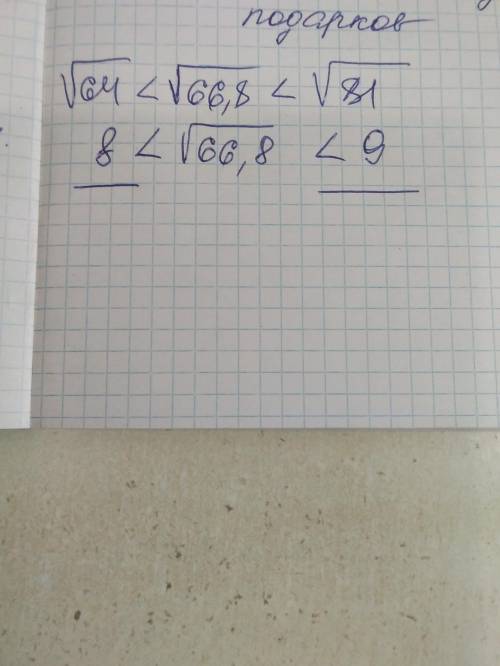 подарков
√64 < √66,8 < √81
8 < √66,8 < 9